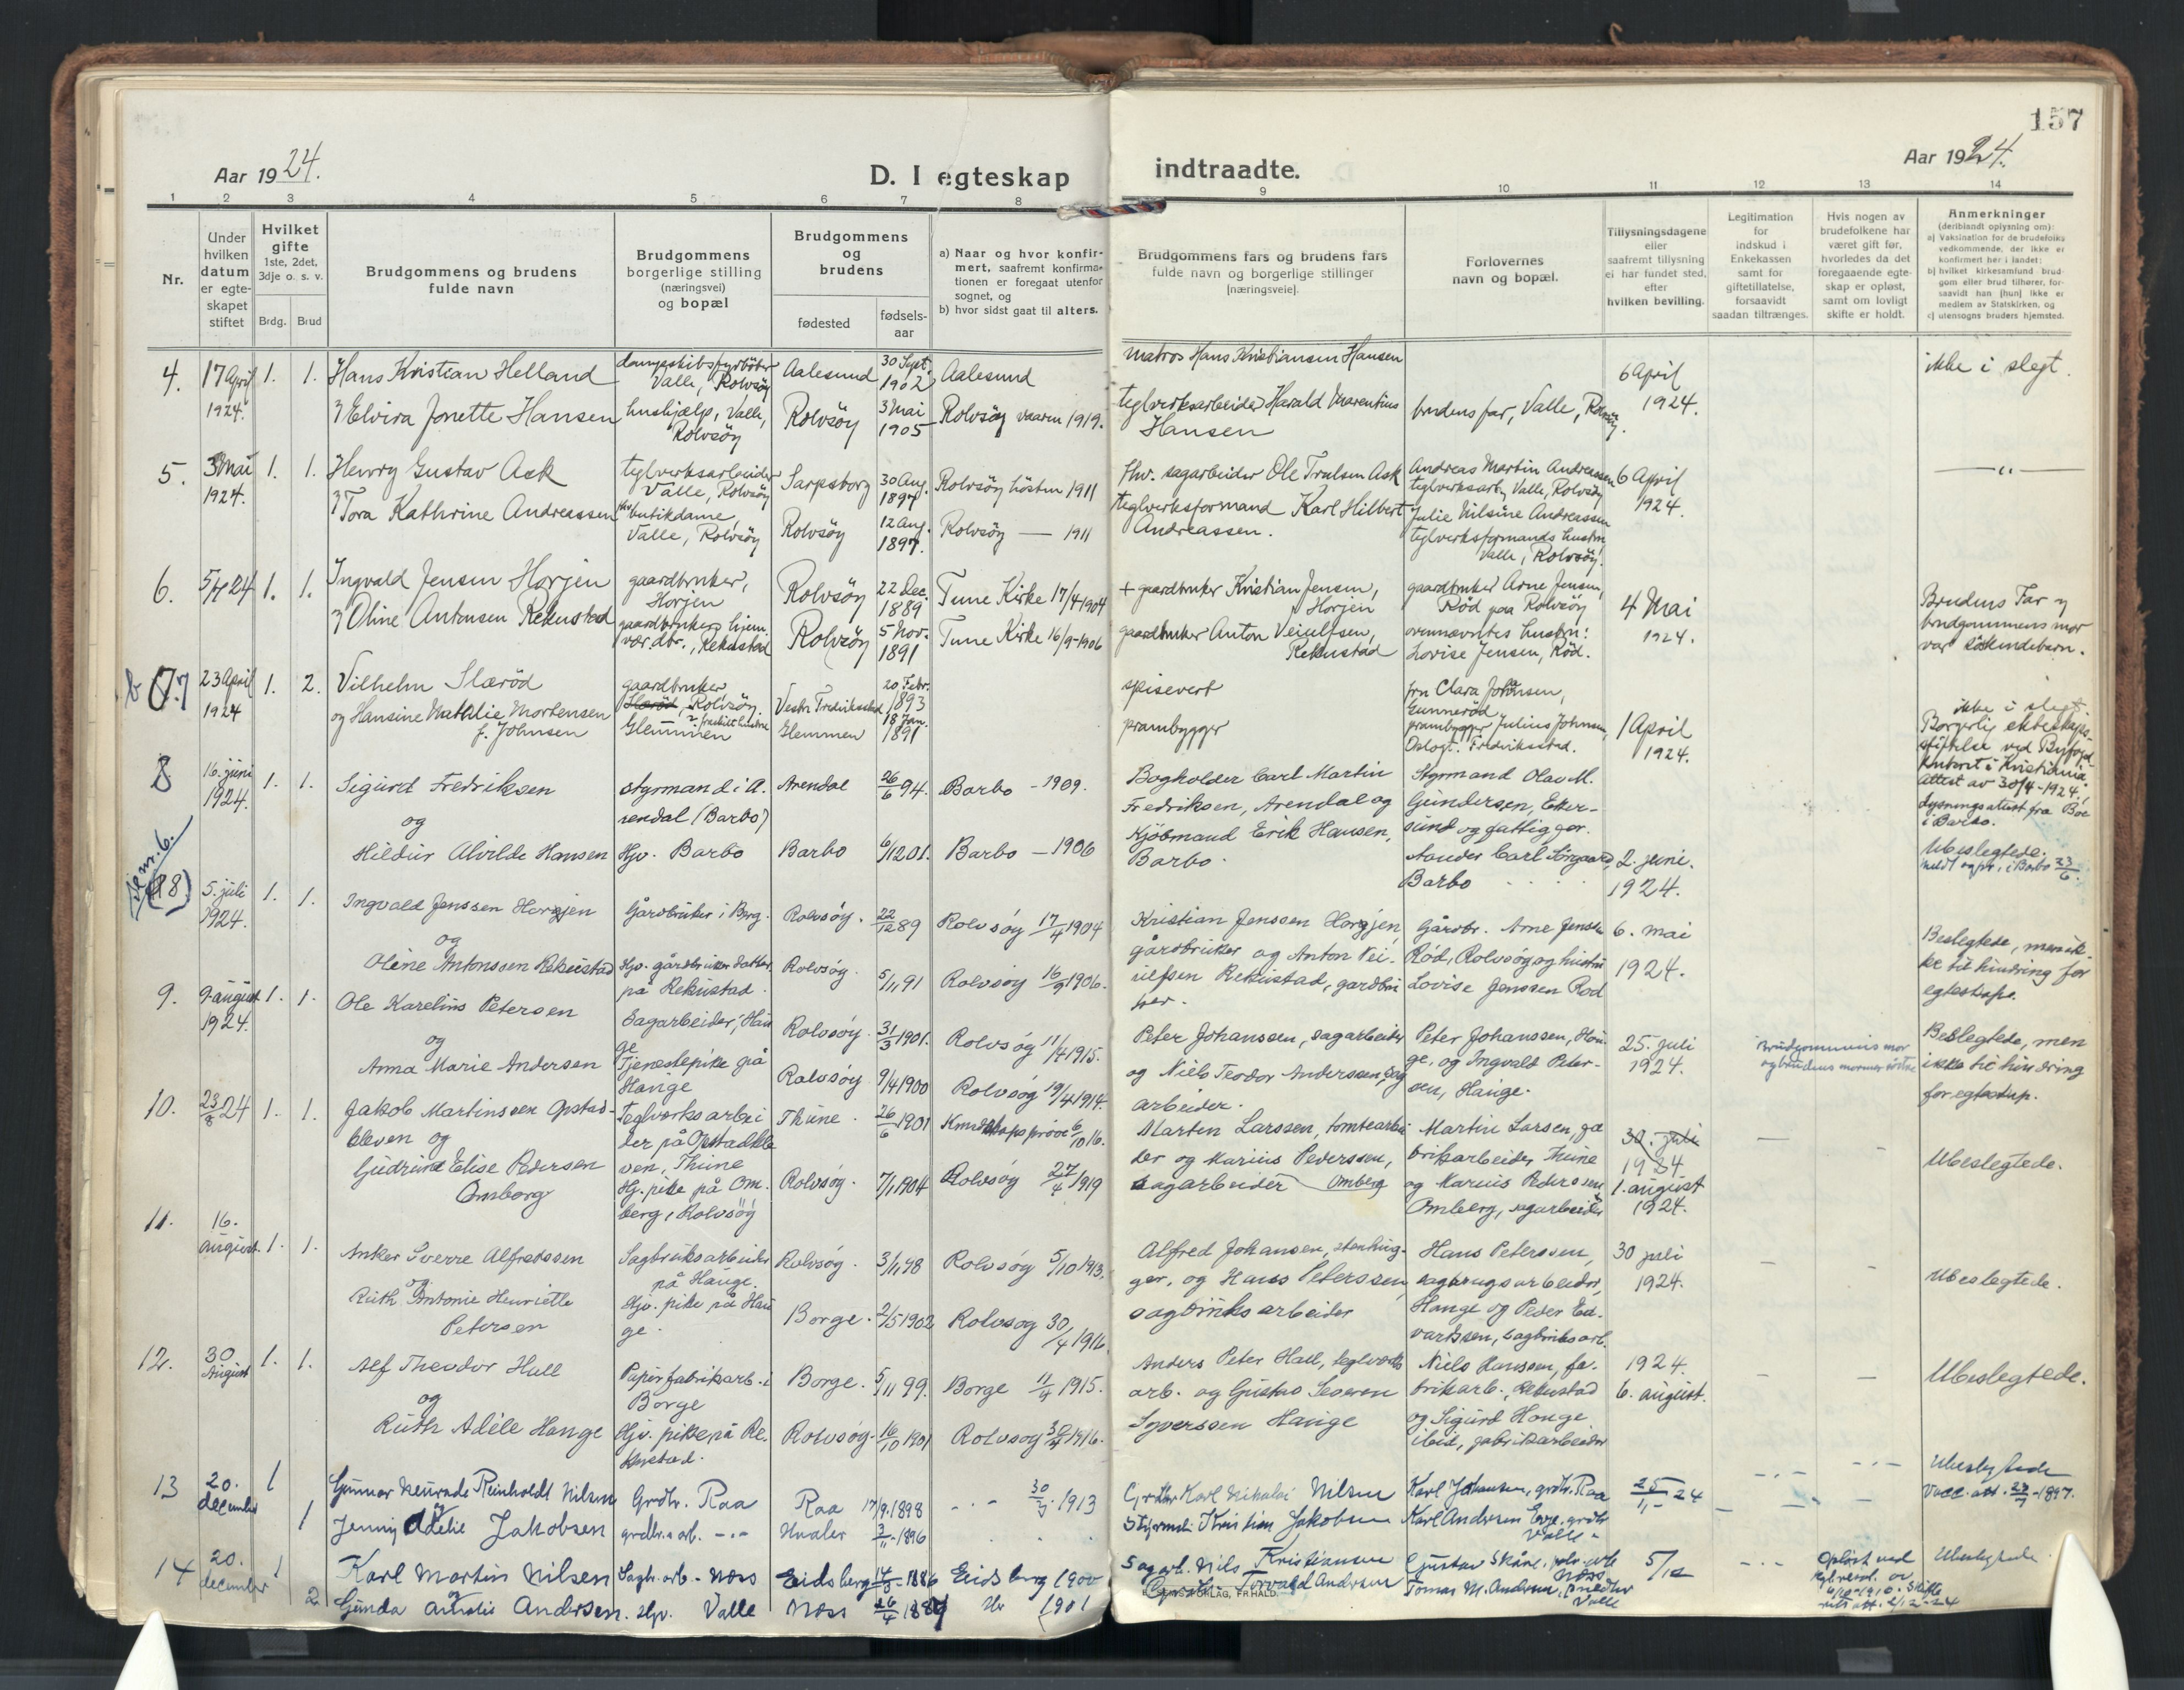 157
Aar 1924.
D. I egteskap
indtraadte.
Aar 1924.
1 2 3 4 5 6 7 8 9 10 11 12 13 14
Nr.
Under hvilken datum er egteskapet stiftet
Hvilket gifte 1ste, 2det, 3dje o. s. v.
Brdg. Brud
Brudgommens og brudens fulde navn
Brudgommens borgerlige stilling (næringsvei) og bopæl
Brudgommens og brudens
fødested
fødsels-aar
a) Naar og hvor konfirmert, saafremt konfirmationen er foregaat utenfor sognet, og
b) hvor sidst gaat til alters.
Brudgommens fars og brudens fars fulde navn og borgerlige stillinger [næringsveie].
Forlovernes navn og bopæl.
Tillysningsdagene eller saafremt tillysning ei har fundet sted, efter hvilken bevilling.
Legitimation for indskud i Enkekassen samt for giftetillatelse, forsaavidt saadan tiltrænges.
Hvis nogen av brudefolkene har været gift før, hvorledes da det foregaaende egteskap er opløst, samt om lovligt skifte er holdt.
Anmerkninger (deriblandt oplysning om):
a] Vaksination for de brudefolks vedkommende, der ikke er konfirmert her i landet;
b] hvilket kirkesamfund brudgom eller brud tilhører, forsaavidt han [hun] ikke er medlem av Statskirken, og
c] utensogns bruders hjemsted.
4. 17 April 1924. 1. 1.
Hans Kristian Helland
dampskibsfyrböter Valle, Rolvsöy
Aalesund 30 Sept. 1902 Aalesund
matros Hans Kristiansen Hansen
6 April 1924.
ikke i slegt.
Elvira Jonette Hansen
hushjælp, Valle, Rolvsöy
Rolvsöy 3 Mai 1905 Rolvsöy vaaren 1919.
teglverksarbeider Harald Marentius Hansen
brudens far, Valle, Rolvsöy.
5. 3 Mai 1924. 1. 1.
Henry Gustav Ask
teglverksarbeider Valle, Rolvsöy
Sarpsborg 30 Aug. 1897 Rolvsöy hösten 1911
fhv. sagarbeider Ole Trulsen Ask
Andreas Martin Andreassen teglverksarb, Valle, Rolvsöy
6 April 1924.
— " —
Tora Kathrine Andreassen
fhv butikdame, Valle, Rolvsöy
Rolvsöy 12 Aug. 1897. Rolvsöy — 1911
teglverksformand Karl Hilbert Andreassen.
Julie Nilsine Andreassen teglverksformands hustru Valle, Rolvsöy.
6. 5/7 24 1. 1.
Ingvald Jensen Horjen
gaardbruker, Horjen
Rolvsöy 22 Dec. 1889 Tune Kirke 17/4 1904
+ gaardbruker Kristian Jensen, Horjen
gaardbruker Arne Jensen, Röd paa Rolvsöy
4 Mai 1924.
Brudens Far og brudgommens mor var söskendebarn.
Oline Antonsen Rekustad
gaardbruker, hjemvær. dtr., Rekustad
Rolvsöy 5 Nov. 1891 Tune Kirke 16/9-1906
gaardbruker Anton Veiulfsen, Rekustad
ovennævntes hustru: Lovise Jensen, Röd.
7 23 April 1924 1. 2.
Vilhelm Slæröd
gaardbruker Slæröd, Rolvsöy.
Vestre Fredrikstad 20 Febr. 1893
spisevert
fru Clara Johansen, Gunneröd
1 April 1924.
ikke i slegt.
Borgerlig ekteskapsstiftelse ved Byfogdkontoret i Kristiania attest av 30/4-1924.
og Hansine Natalie Mortensen f. Johnsen
fraskilt hustru Glemmen
Glemmen 18 Jan. 1891
prambygger
prambygger Julius Johnsen, Oslogt. Fredrikstad.
8 16. juni 1924. 1. 1.
Sigurd Fredriksen
styrmand i Arendal (Barbo)
Arendal 26/6 94. Barbo - 1909.
Bogholder Carl Martin Fredriksen, Arendal og Kjöbmand Erik Hansen, Barbo.
Styrmand Olav M. Gundersen, Ekersund og fattigfor. stander Carl Sörgaard, Barbo
2. juni. 1924.
Lysningsattest fra Boe i Barbo.
Ubeslegtede.
meldt ogpr. i Barbo 23/6.
og
Hildur Alvilde Hansen
Hjv. Barbo
Barbo 6/12 01. Barbo — 1906
se nr. 6.
(18) 5. juli 1924. 1. 1.
Ingvald Jenssen Horgjen
Gårdbruker i Borg.
Rolvsöy. 22/12 89 Rolvsöy 17/4 1904
Kristian Jenssen Horgjen, gårdbruker og Anton Veiulfsen Rekustad, gardbruker.
Gårdbr. Arne Jenssen Röd, Rolvsöy og hustru Lovise Jenssen Röd
6. mai 1924.
Beslegtede, men ikke til hindring for egteskap.
og
Oline Antonssen Rekustad
Hjv. gårdbruker datter på Rekustad.
Rolvsöy. 5/11 91 Rolvsöy 16/9 1906.
9. 9. august 1924. 1. 1.
Ole Karelius Petersen
Sagarbeider, Hauge
Rolvsöy. 31/3 1901. Rolvsöy 11/4 1915.
Peter Johanssen, sagarbeider og Niels Teodor Anderssen, sagarbeider.
Peter Johanssen, Hauge, og Ingvald Petersen, Hauge.
25. juli 1924.
Brudgommens mor og brudens mormor söstre
Beslegtede, men ikke til hindring for egteskap.
og
Anna Marie Andersen
Tjenestepike på Hauge
Rolvsöy 9/4 1900 Rolvsöy 19/4 1914.
10. 23/8 24 1. 1.
Jakob Martinssen Opstadkleven og
Teglverksarbeider på Opstadkleven, Thune
Thune. 26/6 1901 Kundskapsprøve 6/10 16.
Marten Larssen, tomtearbeider og Marius Pederssen, sagarbeider Omberg
Martin Larsen, fabrikarbeider, Thune og Marius Pederssen Omberg, sagarbeider
30. juli 1924
1. august 1924.
Ubeslegtede.
Gudrund Elise Pedersen Omberg
Hj. pike på Omberg, Rolvsöy
Rolvsöy. 7/1 1904 Rolvsöy 27/4 1919
11. 16. august. 1. 1.
Anker Sverre Alfredssen
Sagbruksarbeider på Hauge.
Rolvsöy. 3/11 98 Rolvsöy 5/10 1913.
Alfred Johansen, stenhugger, og Hans Peterssen, sagbruksarbeider
Hans Peterssen, sagbrugsarbeider, Hauge og Peder Edvardssen, sagbruksarb.
30 juli 1924.
Ubeslegtede.
og
Ruth Antonie Henriette Petersen
Hjv. pike på Hauge.
Borge. 2/5 1902 Rolvsøy 30/4 1916.
12. 30. August 1. 1.
Alf Theodor Hall
Papirfabrikarb. i Borge
Borge. 5/11 99. Borge 11/4 1915.
Anders Peter Hall, teglverksarb. og Gustav Severen Syverssen Hauge
Niels Hanssen, fabrikarb., Rekustad og Sigurd Hauge ibid, fabrikarbeider
1924. 6. august.
Ubeslegtede.
og
Ruth Adéle Hauge
Hjv. pike på Rekustad.
Rolvsøy. 16/10 1901 Rolvsøy 30/4 1916.
13 20. december 1
Gunnar Reinholdt Nilsen
Grdbr. Raa
Raa 17/9. 1898 30/3. 1913
Grdbr Karl Nikolai Nilsen
Karl Johansen, grdbr. Raa
25/11 - 24
Ubeslegtede
Vacc. att. 23/7-1897.
og
1 Jenny Adelie Jakobsen
grdbr. arb. -"-
Hvaler 3/11. 1896
Styrmd. Kristian Jakobsen
Karl Andersen grdbr Valle
14 20. december 1
Karl Martin Nilsen
Sagbr. arb. - Næss
Eidsberg 14/3. 1886 Eidsberg 1900
Sagarb. Nils Kristiansen
Gustav Næss
5/12
Opløst ved
Ubeslegtede.
2 Gunda Andersen.
Hjv. Valle
Næss 26/4 188 1901
Torvald Andersen
Tomas M. Andersen, Valle
FORLAG, FR. HALD.